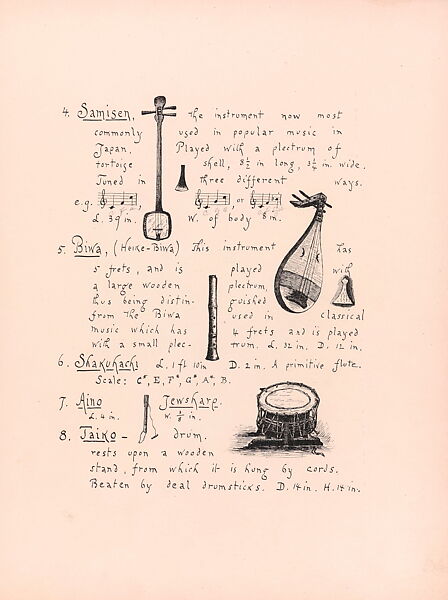 4. Samisen, the instrument now most
commonly used in popular music in
Japan. Played with a plectrum of
tortoise shell, 8½ in long, 3¼ in. wide.
Tuned in three different ways.
e.g. , , or
L. 39 in. W. of body 8 in.
5. Biwa, (Heike-Biwa) This instrument has
5 frets, and is played with
a large wooden plectrum,
thus being distin- guished
from the Biwa used in classical
music which has 4 frets and is played
with a small plec- trum. L. 32 in. D. 12 in.
6. Shakuhachi L. 1 ft 10 in D. 2 in. A primitive flute.
Scale: C#, E, F#, G#, A#, B.
7. Aino Jewsharp.
L. 4 in. W. in.
8. Taiko - drum.
rests upon a wooden
stand, from which it is hung by cords.
Beaten by deal drumsticks. D. 14 in. H. 14 in.